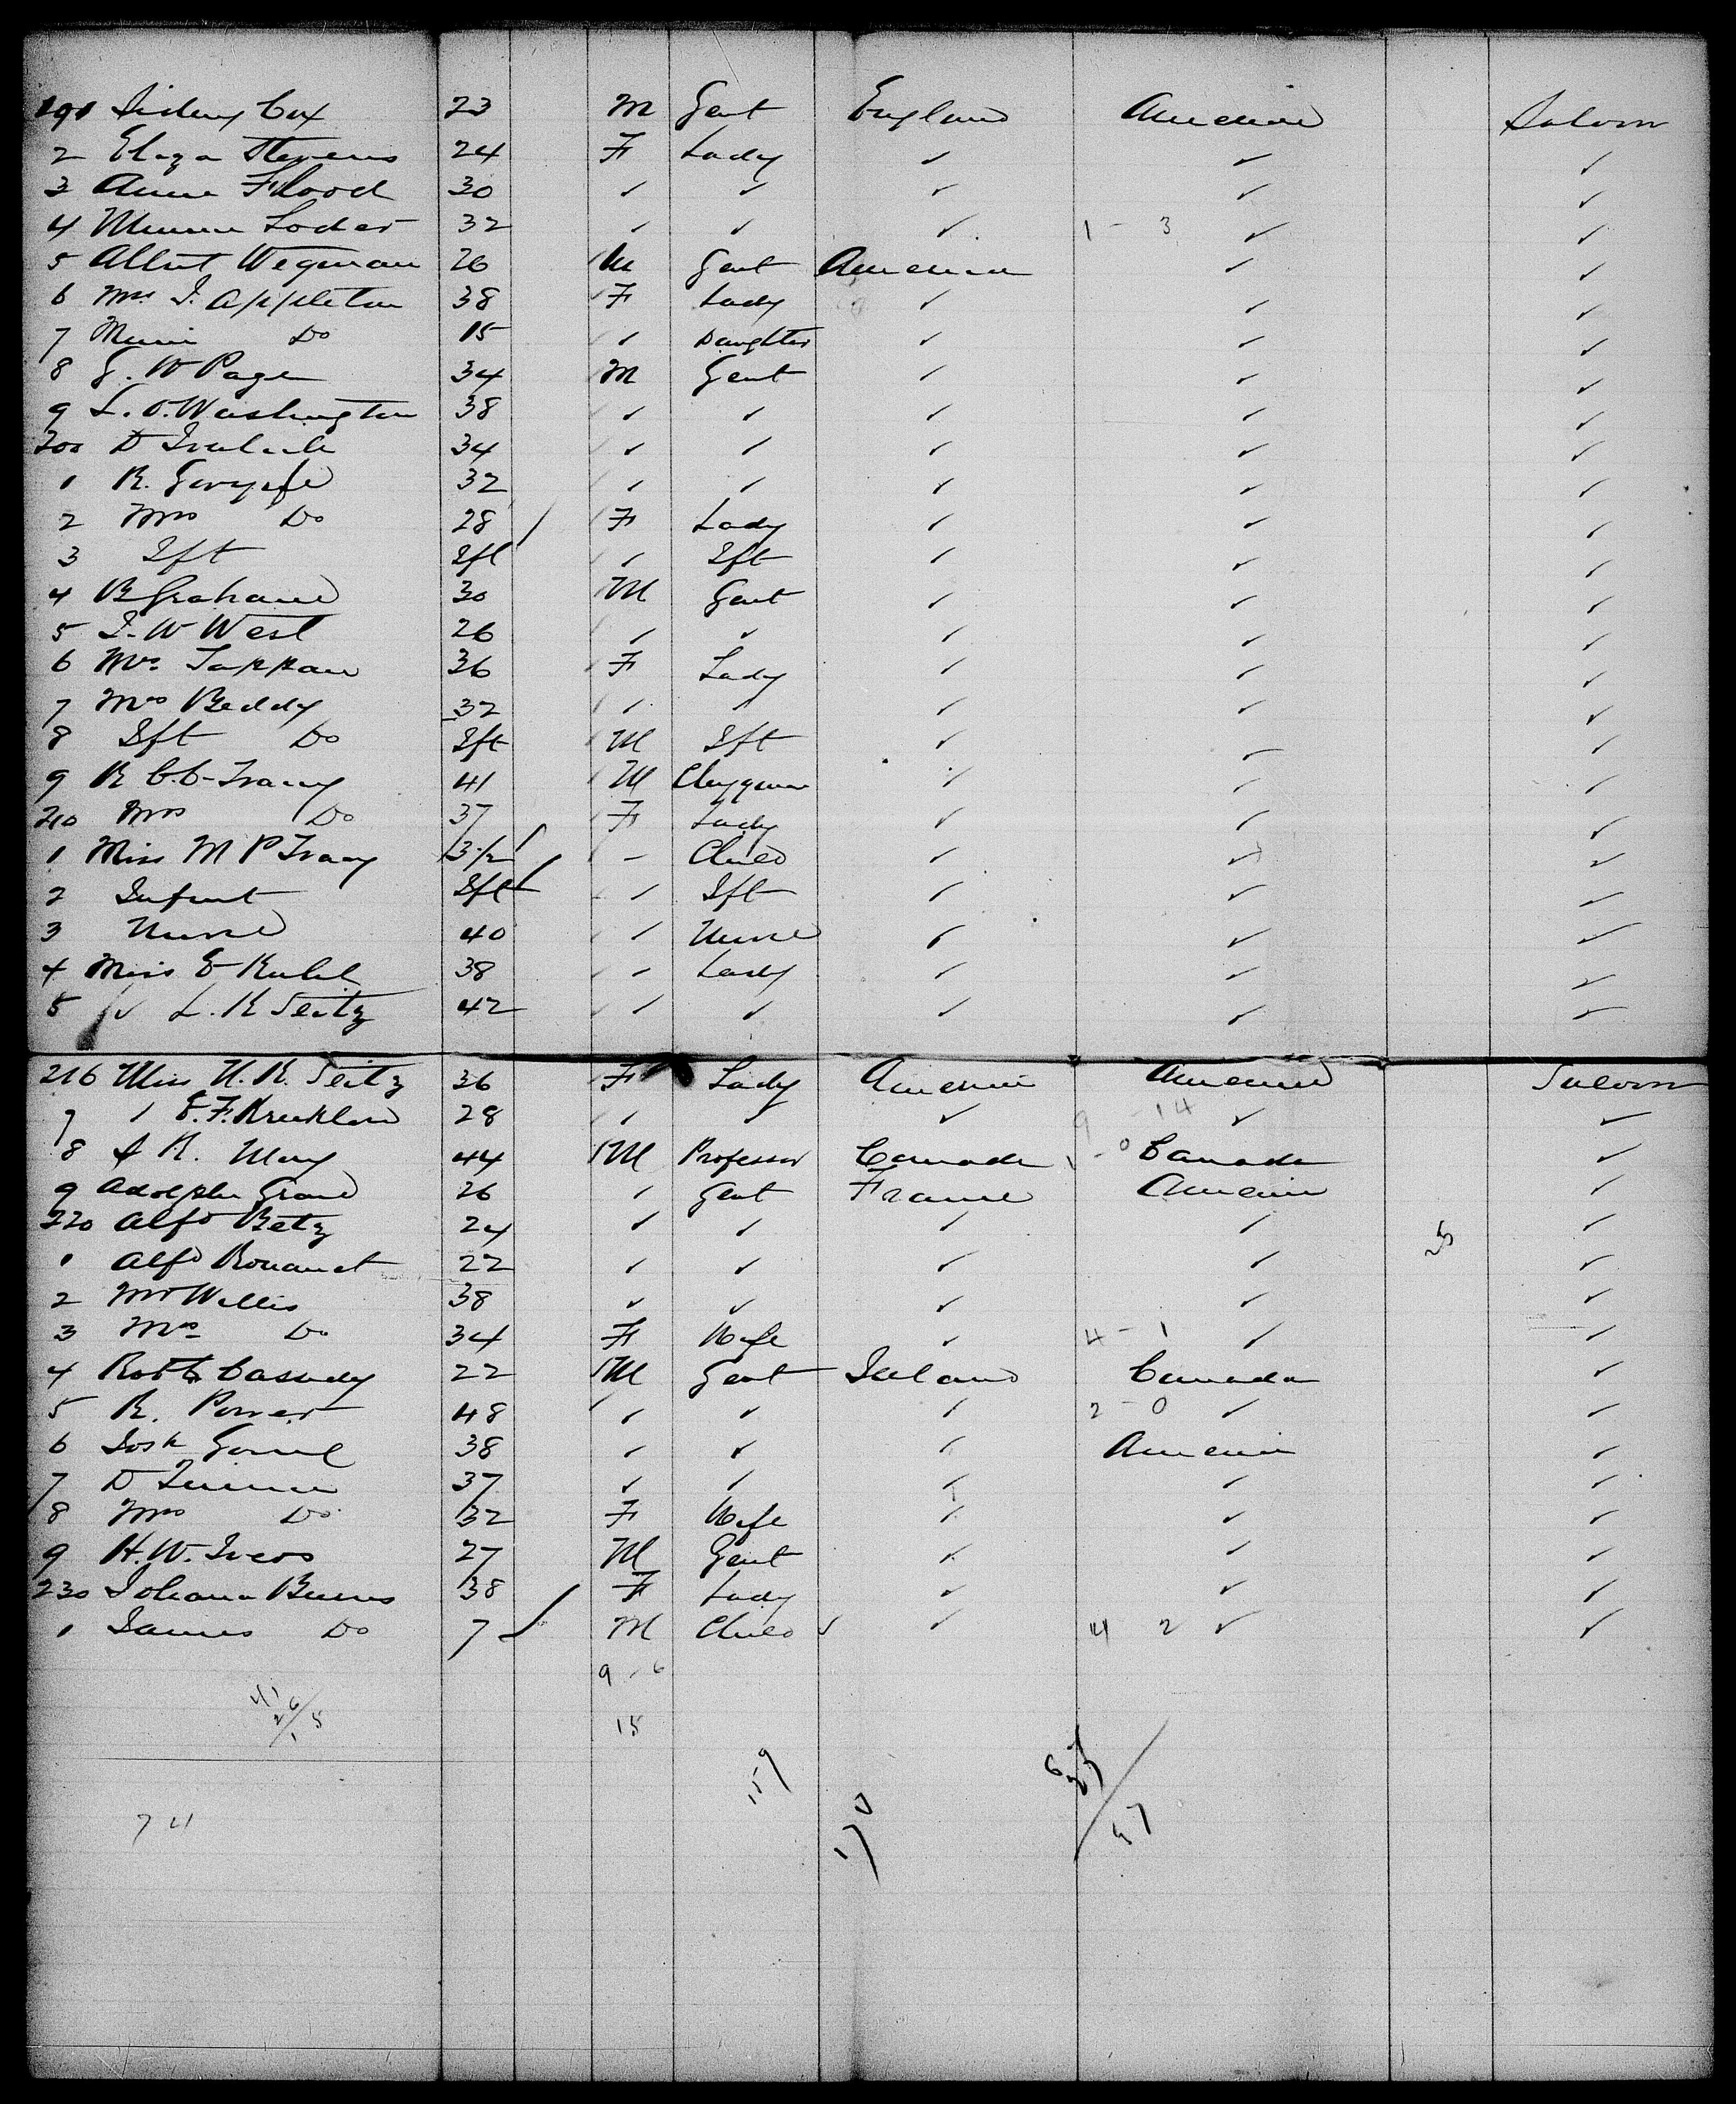 191 Sidney Cox 23 M Gent England America Saloon
2 Eliza Stevens 24 F Lady ✓ ✓ ✓
3 Annie Flood 30 ✓ ✓ ✓ ✓ ✓
4 Minnie Loder 32 ✓ ✓ ✓ 1 - 3 ✓ ✓
5 Albert Wegman 26 M Gent America ✓ ✓
6 Mrs I. Appleton 38 F Lady ✓ ✓ ✓
7 Do 15 ✓ Daughter ✓ ✓ ✓
8 G. W Page 34 M Gent ✓ ✓ ✓
9 L. O. Washington 38 ✓ ✓ ✓ ✓ ✓
200 D 34 ✓ ✓ ✓ ✓ ✓
1 R. 32 ✓ ✓ ✓ ✓ ✓
2 Mrs Do 28 F Lady ✓ ✓ ✓
3 Ift Ift ✓ Ift ✓ ✓ ✓
4 B Grahame 30 M Gent ✓ ✓ ✓
5 I. W West 26 ✓ ✓ ✓ ✓ ✓
6 Mrs Tappan 36 F Lady ✓ ✓ ✓
7 Mrs Beddy 32 ✓ ✓ ✓ ✓ ✓
8 Ift Do Ift M Ift ✓ ✓ ✓
9 R C. C. Tracy 41 M Clergyman ✓ ✓ ✓
210 Mrs Do 37 F Lady ✓ ✓ ✓
1 Miss M P Tracy 3 1/2 - Child ✓ ✓ ✓
2 Infant Ift ✓ Ift ✓ ✓ ✓
3 Nurse 40 ✓ Nurse ✓ ✓ ✓
4 Miss E 38 ✓ Lady ✓ ✓ ✓
5 ✓ L. K Seitz 42 ✓ ✓ ✓ ✓ ✓
216 Miss N. K. Seitz 36 F Lady America America Saloon
7 ✓ E. F. 28 ✓ ✓ ✓ 9 - 14 ✓ ✓
8 44 M Professor Canada 1 - 0 Canada ✓
9 Adolphe 26 ✓ Gent France America ✓
220 Alfd Betz 24 ✓ ✓ ✓ ✓ 25 ✓
1 Alfd Rouanet 22 ✓ ✓ ✓ ✓ ✓
2 Mr Willis 38 ✓ ✓ ✓ ✓ ✓
3 Mrs Do 34 F Wife ✓ 4 - 1 ✓ ✓
4 Robt Cassidy 22 M Gent Ireland Canada ✓
5 R. Power 48 ✓ ✓ ✓ 2 - 0 ✓ ✓
6 Josh 38 ✓ ✓ ✓ America ✓
7 D 37 ✓ ✓ ✓ ✓ ✓
8 Mrs Do 32 F Wife ✓ ✓ ✓
9 H. W. Ivers 27 M Gent ✓ ✓ ✓
230 Johana Burns 38 F Lady ✓ ✓ ✓
1 James Do 7 M Child ✓ ✓ 4 2 ✓ ✓
9 - 6
15
159
170
57
74